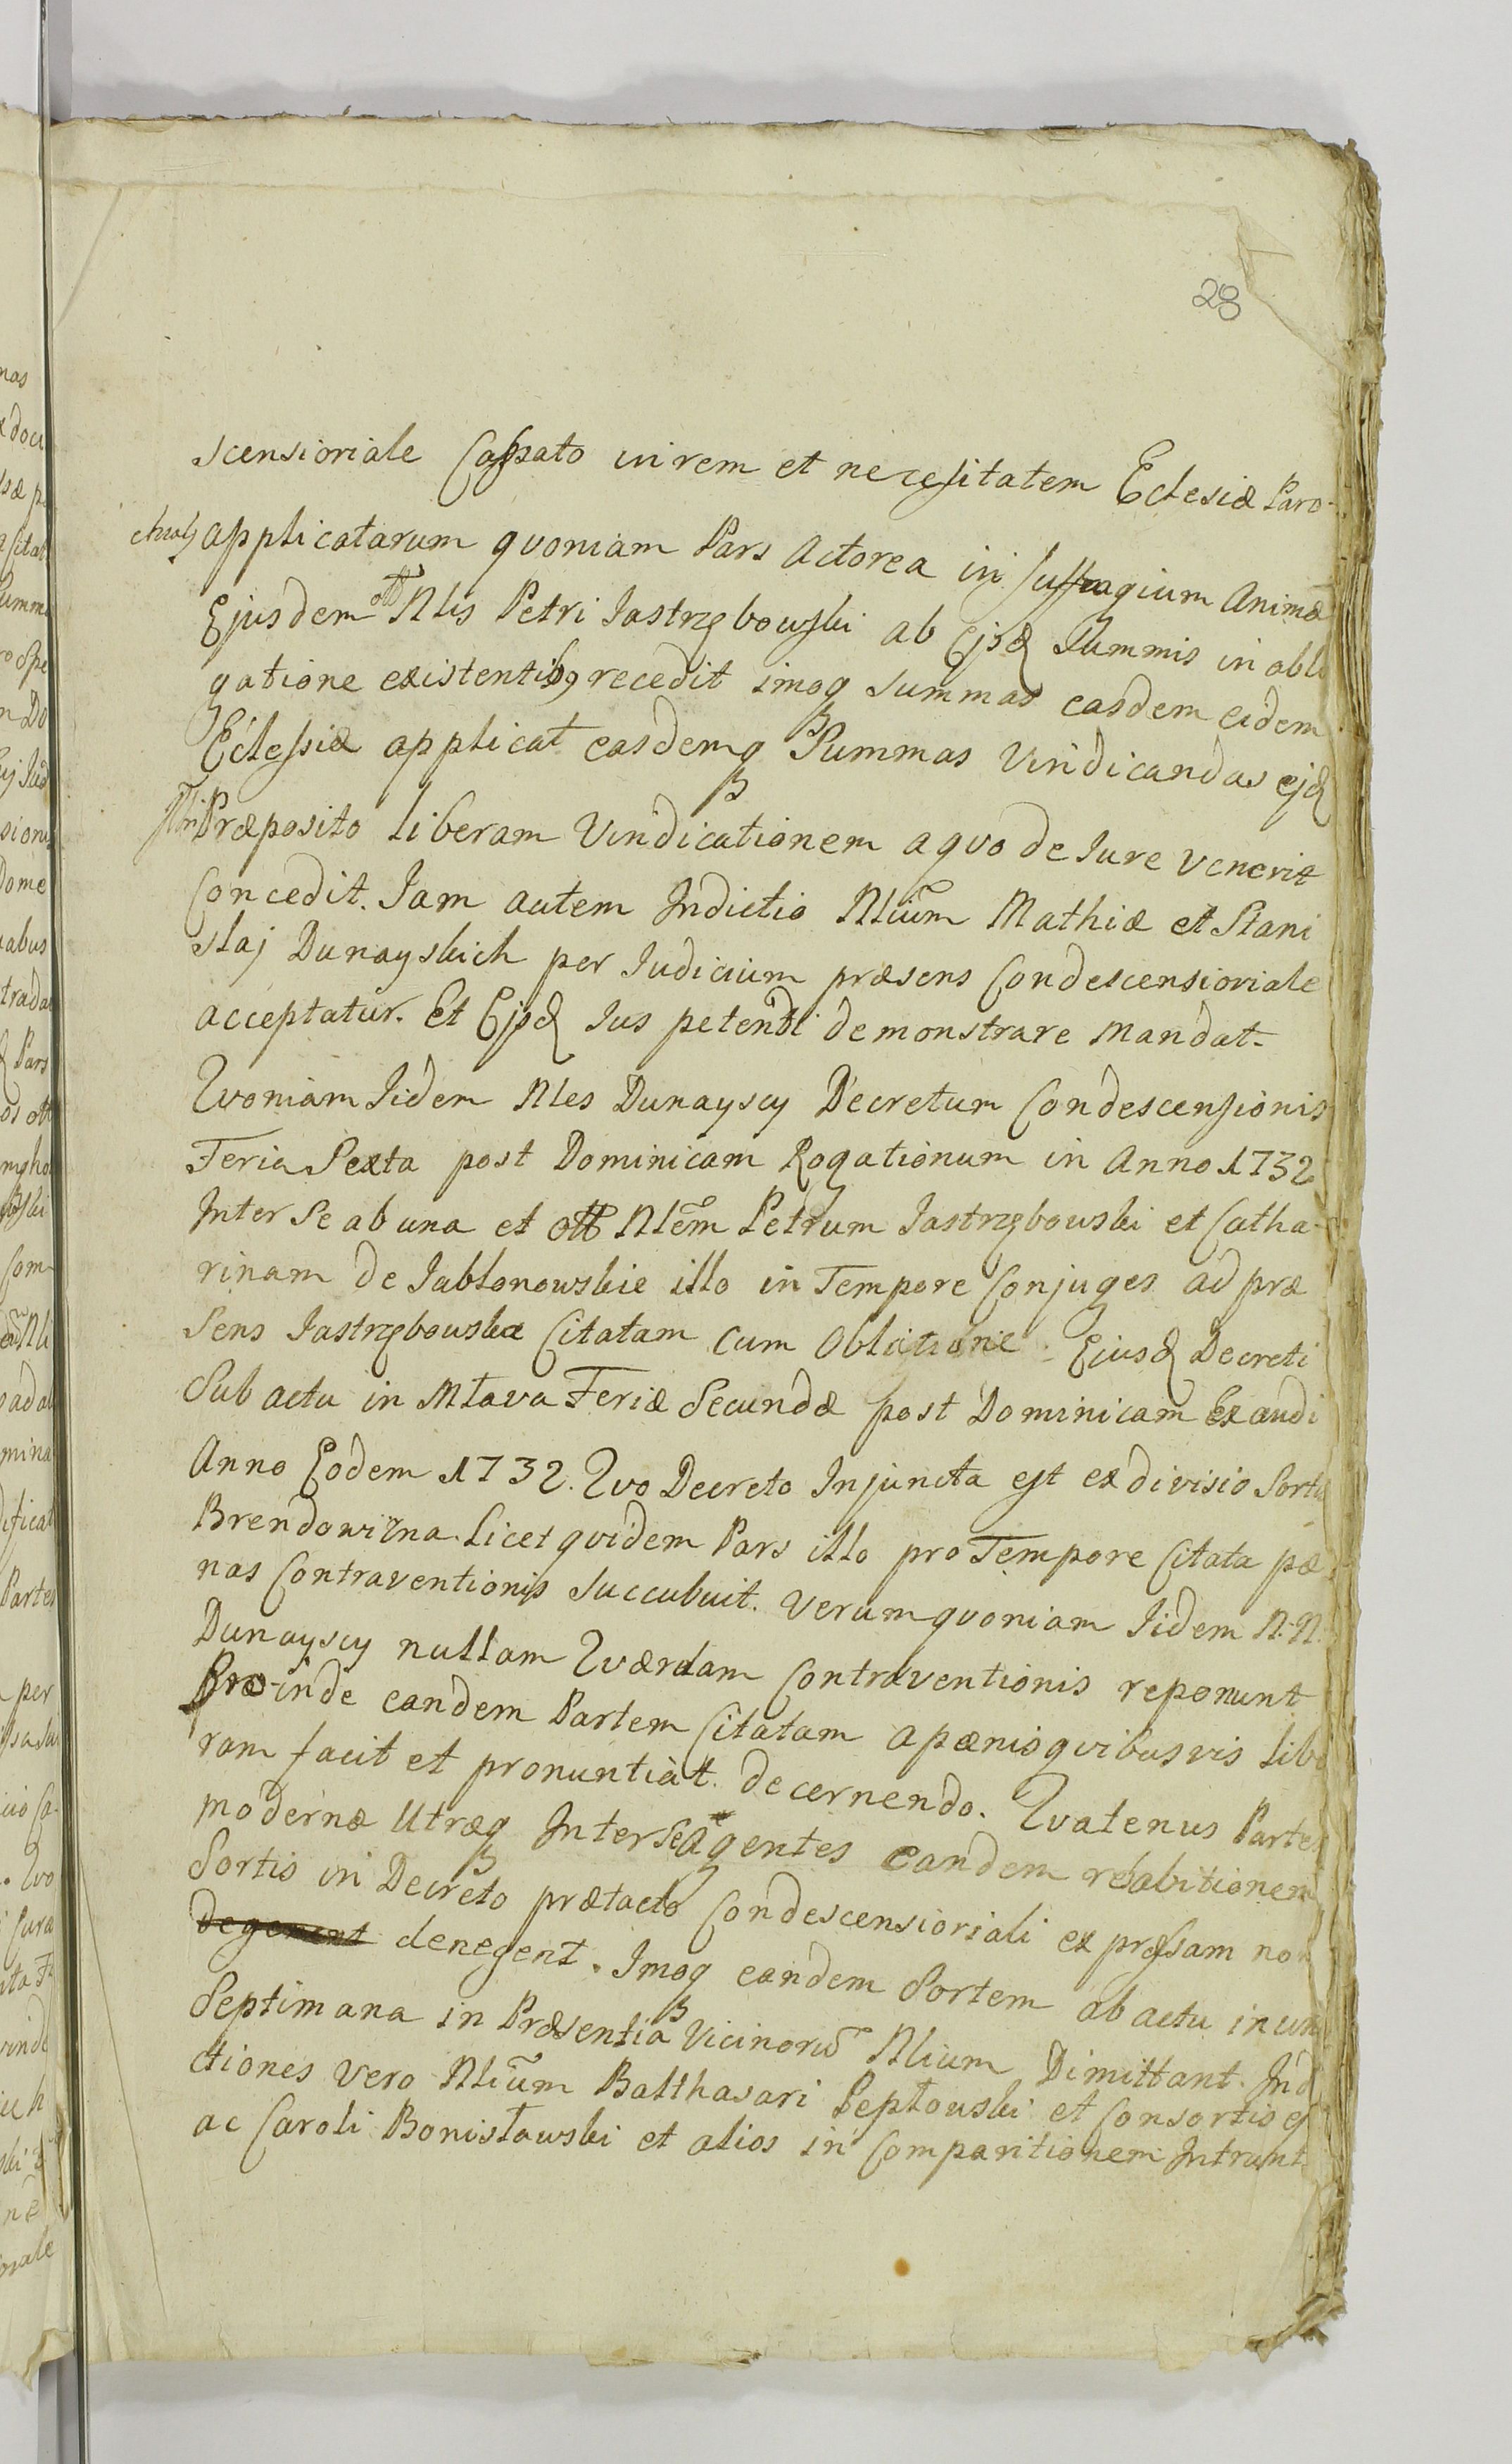 28
scensioriale Cassato in rem et necessitatem Eclesiæ Paro-
chialis applicatarum quoniam Pars Actorea in suffragium Animæ
Ejusdem ott Nlis Petri Jastrzębowski ab Ejsd Summis in obli
gatione existentibq recedit imoq summas easdem eidem
Eclessiæ applicat easdemq Summas Vindicandas ejd
Præposito liberam Vindicationem a quo de Jure venerit
Concedit. Jam autem Indictio Nlium Mathiæ et Stani
slaj Dunayskich per Judicium præsens Condescensioriale
acceptatur. Et Ejsd Jus petendi demonstrare mandat-
Quoniam Iidem Nles Dunayscy Decretum Condescensionis
Feria Sexta post Dominicam Rogationum in Anno 1732
Inter Se ab una et ott Nlem Petrum Jastrzębowski et Catha-
rinam de Jabłonowskie illo in Tempore Conjuges ad præ
sens Jastrzębowska Citatam cum Oblatione Ejusd Decreti
Sub actu in Mlava Feriæ Secundæ post Dominicam Exaudi
Anno Eodem 1732. Quo Decreto Injuncta est exdivisio Sortis
Brendowizna. Licet quidem Pars illo pro Tempore Citata pæ
nas Contraventionis succubuit. Verum quoniam Iidem N.N.
Dunayscy nullam Quærelam Contraventionis reponunt
Pro-inde eandem Partem Citatam a pænis quibusvis libe
ram facit et pronuntiat decernendo. Quatenus Partes
modernæ Utræq Inter Se Agentes eandem
Sortis in Decreto prætacto Condescensioriali expressam non
denegent. Imoq eandem Sortem ab actu in una
Septimana in Præsentia Vicinorum Nlium Dimittant. Ind
ctiones vero Nlium Balthasari Peptowski et Consortis ej
ac Caroli Bonisławski et alios in Comparitionem Intrant